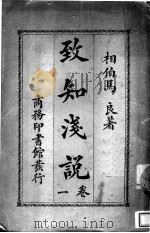 相伯馬良著
致知淺說
卷一
商務印書館發行
www.toutoo.com